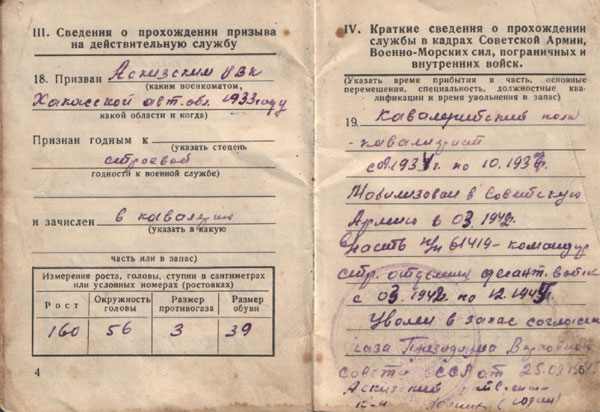 III. Сведения о прохождении призыва
на действительную службу
18. Призван Аскизским РВК
(каким военкоматом,
Хакасской авт. обл. 1933 году
какой области и когда)
Признан годным к
(указать степень
строевой
годности к военной службе)
и зачислен в кавалерию
(указать в какую
часть или в запас)
Измерения роста, головы, ступни в сантиметрах
или условных номерах (ростовках)
Рост Окружность головы Размер противогаза Размер обуви
160 56 3 39
4
IV. Краткие сведения о прохождении
службы в кадрах Советской Армии,
Военно-Морских сил, пограничных и
внутренних войск.
(Указать время прибытия в часть, основные
перемещения, специальность, должностные ква-
лификации и время увольнения в запас)
19. Кавалерийский полк
- кавалерист
по 10.193
Мобилизован в Советскую
Армию в 03.1942г.
часть п/п 61419 - командир
стр. отделения десант. войск
с 03.1942 по 12.1945
Уволен в запас согласно
каза Президиума Верховного
совета СССР от 25.09
Аскизский